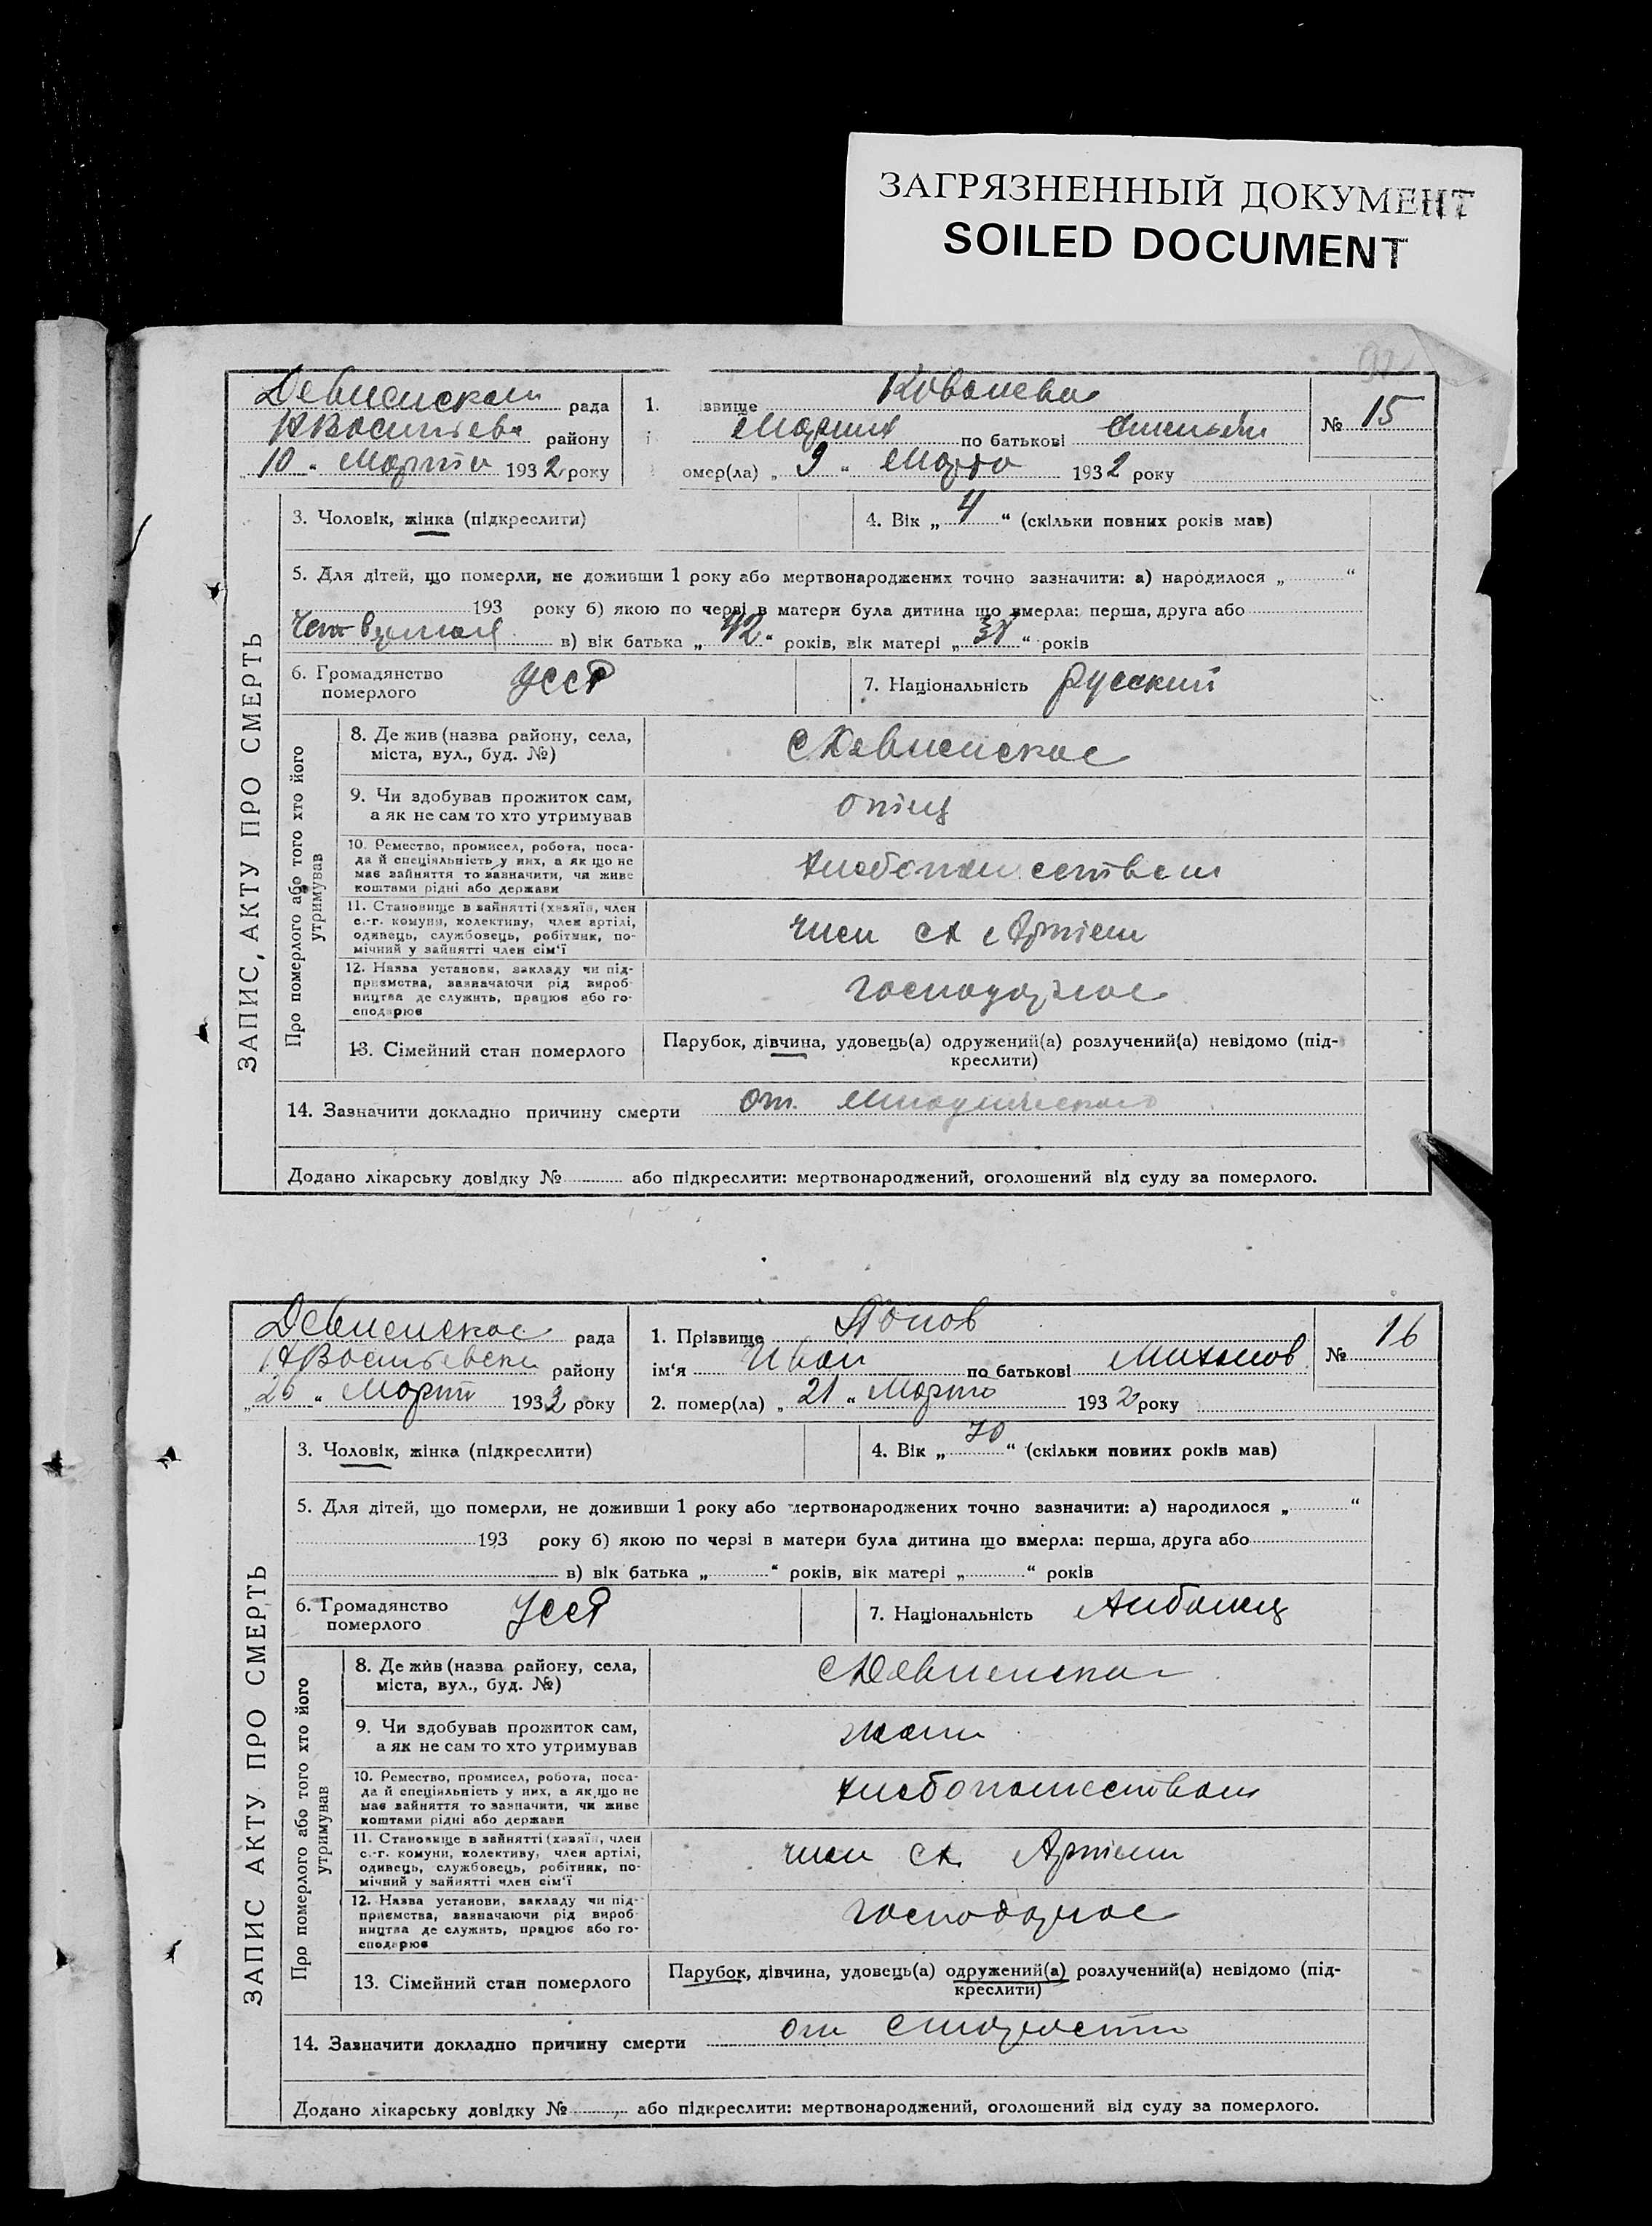 ЗАГРЯЗНЕННЫЙ ДОКУМЕНТ
SOILED DOCUMENT
ЗАПИС, АКТУ ПРО СМЕРТЬ
рада
району
10 " Марта 1932 року
1. звище Ковалева
по батькові
омер(ла) „ 9 " Марта 1932 року
№ 15
3. Чоловік, жінка (підкреслити)
4. Вік „ 4 " (скільки повних років мав)
5. Для дітей, що померли, не доживши 1 року або мертвонароджених точно зазначити: а) народилося „ "
193 року б) якою по черзі в матери була дитина що вмерла: перша, друга або
в) вік батька „ 42 " років, вік матері „ " років
6. Громадянство
померлого
УССР
7. Національність русский
Про померлого або того хто його
утримував
8. Де жив (назва району, села,
міста, вул., буд. №)
9. Чи здобував прожиток сам,
а як не сам то хто утримував
отец
10. Ремество, промисел, робота, поса-
да й спеціяльність у них, а як що не
має зайняття то зазначити, чи живе
коштами рідні або держави
11. Становище в зайнятті (хазяїн, член
с.-г. комуни, колективу, член артілі,
одивець, службовець, робітник, по-
мічний у зайнятті член сім'ї
член сх Артели
12. Назва установи, закладу чи під-
приємства, зазначаючи рід вироб
ництва де служить, працює або го-
сподарює
13. Сімейний стан померлого
Парубок, дівчина, удовець(а) одружений(а) розлучений(а) невідомо (під-
креслити)
14. Зазначити докладно причину смерти от
Додано лікарську довідку № або підкреслити: мертвонароджений, оголошений від суду за померлого.
ЗАПИС АКТУ ПРО СМЕРТЬ
рада
району
„ 26 " Март 1932 року
1. Прізвище Попов
ім'я Иван по батькові Михайлов
2. помер(ла) „ 21 " Марта 1932 року
№ 16
3. Чоловік, жінка (підкреслити)
4. Вік „ 70 " (скільки повних років мав)
5. Для дітей, що померли, не доживши 1 року або мертвонароджених точно зазначити: а) народилося „ "
193 року б) якою по черзі в матери була дитина що вмерла: перша, друга або
в) вік батька „ " років, вік матері „ " років
6. Громадянство
померлого
УССР
7. Національність Албанец
Про померлого або того хто його
утримував
8. Де жив (назва району, села,
міста, вул., буд. №)
9. Чи здобував прожиток сам,
а як не сам то хто утримував
10. Ремество, промисел, робота, поса-
да й спеціяльність у них, а як що не
має зайняття то зазначити, чи живе
коштами рідні або держави
11. Становище в зайнятті (хазяїн, член
с.-г. комуни, колективу, член артілі,
одивець, службовець, робітник, по-
мічний у зайнятті член сім'ї
член сх. Артели
12. Назва установи, закладу чи під-
приємства, зазначаючи рід вироб
ництва де служить, працює або го-
сподарює
13. Сімейний стан померлого
Парубок, дівчина, удовець(а) одружений(а) розлучений(а) невідомо (під-
креслити)
14. Зазначити докладно причину смерти от старости
Додано лікарську довідку № або підкреслити: мертвонароджений, оголошений від суду за померлого.